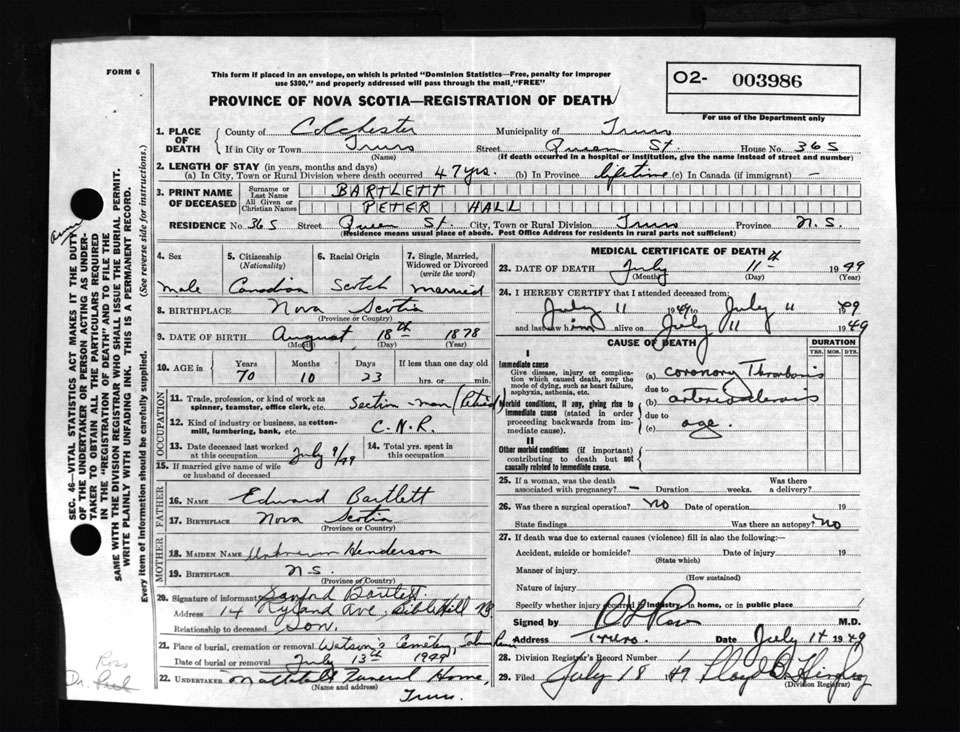 FORM 6
This form if placed in an envelope, on which is printed "Dominion Statistics—Free, penalty for improper
use $300," and properly addressed will pass through the mail "FREE"
O2- 003986
For use of the Department only
PROVINCE OF NOVA SCOTIA—REGISTRATION OF DEATH
1. PLACE OF DEATH
County of Colchester Municipality of Truro
If in City or Town Truro Street Queen St. House No. 365
(Name) (If death occurred in a hospital or institution, give the name instead of street and number)
2. LENGTH OF STAY (in years, months and days)
(a) In City, Town or Rural Division where death occurred 47 yrs. (b) In Province lifetime (c) In Canada (if immigrant) —
3. PRINT NAME OF DECEASED
Surname or Last Name BARTLETT
All Given or Christian Names PETER HALL
RESIDENCE No. 365 Street Queen St. City, Town or Rural Division Truro Province N.S.
(Residence means usual place of abode. Post Office Address for residents in rural parts not sufficient)
4. Sex
male
5. Citizenship
(Nationality)
Canadian
6. Racial Origin
Scotch
7. Single, Married, Widowed or Divorced
(write the word)
married
8. BIRTHPLACE Nova Scotia
(Province or Country)
9. DATE OF BIRTH August 18th 1878
(Month) (Day) (Year)
10. AGE Years Months Days If less than one day
70 10 23 hrs. or min.
OCCUPATION
11. Trade, profession, or kind of work as
spinner, teamster, office clerk, etc. Section-man (Retired)
12. Kind of industry or business, as cotton-
mill, lumbering, bank, etc. C.N.R.
13. Date deceased last worked
at this occupation July 9/49
14. Total yrs. spent in
this occupation
15. If married give name of wife
or husband of deceased
FATHER
16. NAME Edward Bartlett
17. BIRTHPLACE Nova Scotia
(Province or Country)
MOTHER
18. MAIDEN NAME Unknown Henderson
19. BIRTHPLACE N.S.
(Province or Country)
20. Signature of informant Sanford Bartlett
Address 14 Ryland Ave, Bible Hill NS
Relationship to deceased Son.
21. Place of burial, cremation or removal Watson's Cemetery,
Date of burial or removal July 13th 1949
22. UNDERTAKER Mattatall Funeral Home,
(Name and address) Truro.
MEDICAL CERTIFICATE OF DEATH
23. DATE OF DEATH July 11th 1949
(Month) (Day) (Year)
24. I HEREBY CERTIFY that I attended deceased from:
July 11 1949 to July 11 1949
and last saw him alive on July 11 1949
CAUSE OF DEATH
DURATION
YRS. MOS. DYS.
I
Immediate cause
Give disease, injury or complica-
tion which caused death, not the
mode of dying, such as heart failure,
asphyxia, asthenia, etc.
(a) coronary Thrombosis
due to
Morbid conditions, if any, giving rise to
immediate cause (stated in order
proceeding backwards from im-
mediate cause).
(b) arteriosclerosis
due to
(c) age.
II
Other morbid conditions (if important)
contributing to death but not
causally related to immediate cause.
25. If a woman, was the death
associated with pregnancy? — Duration weeks. Was there
a delivery?
26. Was there a surgical operation? No Date of operation 19
State findings Was there an autopsy? No
27. If death was due to external causes (violence) fill in also the following:—
Accident, suicide or homicide? Date of injury 19
(State which)
Manner of injury
(How sustained)
Nature of injury
Specify whether injury occurred in industry, in home, or in public place
Signed by Ross M.D.
Address Truro. Date July 14 1949
28. Division Registrar's Record Number
29. Filed July 18 49 Floyd
(Division Registrar)
SEC. 46—VITAL STATISTICS ACT MAKES IT THE DUTY
OF THE UNDERTAKER OR PERSON ACTING AS UNDER-
TAKER TO OBTAIN ALL THE PARTICULARS REQUIRED
IN THE "REGISTRATION OF DEATH" AND TO FILE THE
SAME WITH THE DIVISION REGISTRAR WHO SHALL ISSUE THE BURIAL PERMIT.
WRITE PLAINLY WITH UNFADING INK. THIS IS A PERMANENT RECORD.
Every item of information should be carefully supplied. (See reverse side for instructions.)
Ross
Dr.